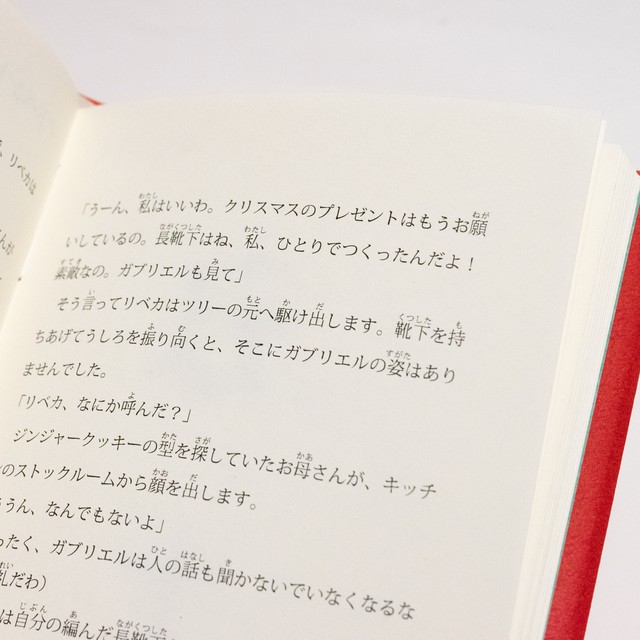 、リベカは
んが
「うーん、私はいいわ。クリスマスのプレゼントはもうお願
いしているの。長靴下はね、私、ひとりでつくったんだよ！
素敵なの。ガブリエルも見て」
そう言ってリベカはツリーの元へ駆け出します。靴下を持
ちあげてうしろを振り向くと、そこにガブリエルの姿はあり
ませんでした。
「リベカ、なにか呼んだ？」
ジンジャークッキーの型を探していたお母さんが、キッチ
のストックルームから顔を出します。
うん、なんでもないよ」
ったく、ガブリエルは人の話も聞かないでいなくなるな
礼だわ）
は自分の編んだ長靴下